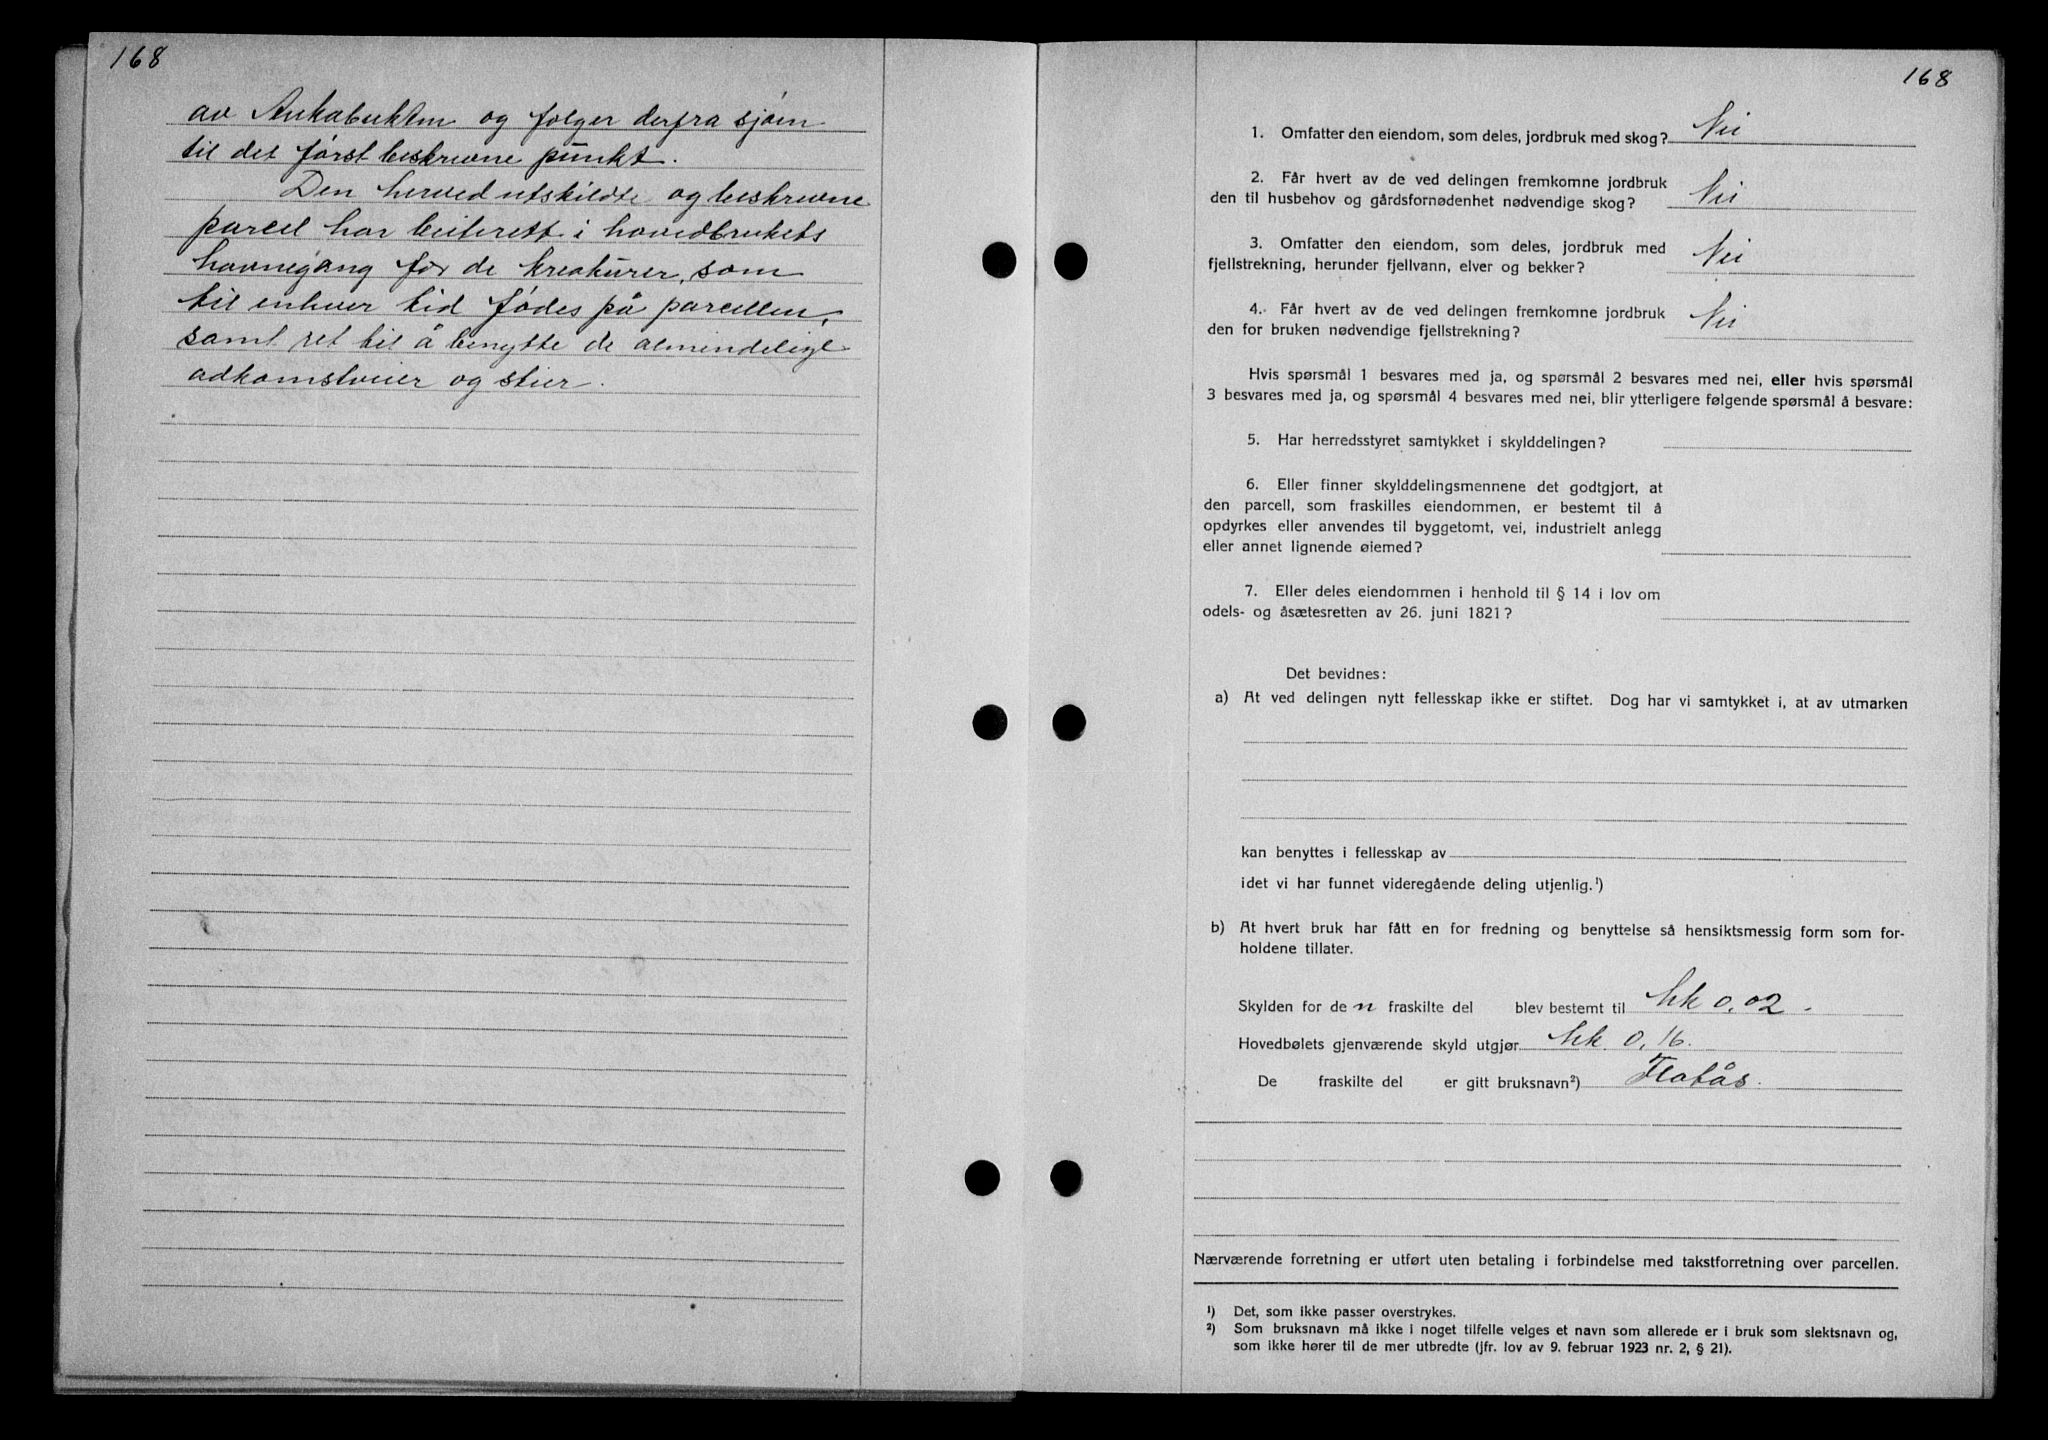 168
av Ankabukten og følger derfra sjøen
til det først beskrevne punkt.
Den herved utskildte og beskrevne
parcel har beiterett i hovedbrukets
havnegang for de kreaturer, som
til enhver tid fødes på parcellen,
samt ret til å benytte de almindelige
adkomstveier og stier.
168
1. Omfatter den eiendom, som deles, jordbruk med skog? Nei
2. Får hvert av de ved delingen fremkomne jordbruk
den til husbehov og gårdsfornødenhet nødvendige skog? Nei
3. Omfatter den eiendom, som deles, jordbruk med
fjellstrekning, herunder fjellvann, elver og bekker? Nei
4. Får hvert av de ved delingen fremkomne jordbruk
den for bruken nødvendige fjellstrekning? Nei
Hvis spørsmål 1 besvares med ja, og spørsmål 2 besvares med nei, eller hvis spørsmål
3 besvares med ja, og spørsmål 4 besvares med nei, blir ytterligere følgende spørsmål å besvare:
5. Har herredsstyret samtykket i skylddelingen?
6. Eller finner skylddelingsmennene det godtgjort, at
den parcell, som fraskilles eiendommen, er bestemt til å
opdyrkes eller anvendes til byggetomt, vei, industrielt anlegg
eller annet lignende øiemed?
7. Eller deles eiendommen i henhold til § 14 i lov om
odels- og åsætesretten av 26. juni 1821?
Det bevidnes:
a) At ved delingen nytt fellesskap ikke er stiftet. Dog har vi samtykket i, at av utmarken
kan benyttes i fellesskap av
idet vi har funnet videregående deling utjenlig.¹)
b) At hvert bruk har fått en for fredning og benyttelse så hensiktsmessig form som for-
holdene tillater.
Skylden for de n fraskilte del blev bestemt til Mk 0,02.
Hovedbølets gjenværende skyld utgjør Mk. 0,16.
De fraskilte del er gitt bruksnavn²) Flatås.
Nærværende forretning er utført uten betaling i forbindelse med takstforretning over parcellen.
¹) Det, som ikke passer overstrykes.
²) Som bruksnavn må ikke i noget tilfelle velges et navn som allerede er i bruk som slektsnavn og,
som ikke hører til de mer utbredte (jfr. lov av 9. februar 1923 nr. 2, § 21).